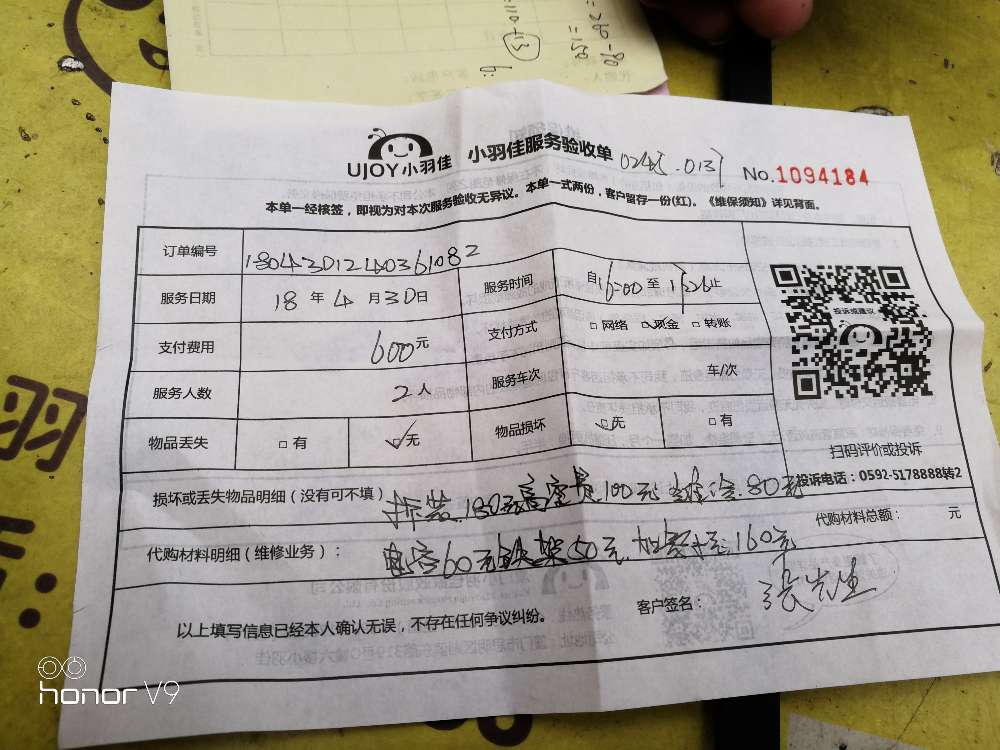 UJOY小羽佳 小羽佳服务验收单 No.1094184
本单一经核签，即视为对本次服务验收无异议。本单一式两份，客户留存一份(红)。《维保须知》详见背面。
订单编号
服务日期 18 年 4 月 30 日 服务时间 自 16:00 至 17:26 止
支付费用 600 元 支付方式 □ 网络 ☑ 现金 □ 转账
服务人数 2 人 服务车次 车/次
物品丢失 □ 有 ☑ 无 物品损坏 ☑ 无 □ 有
投诉或建议
扫码评价或投诉
投诉电话：0592-5178888转2
损坏或丢失物品明细（没有可不填） 拆装 180元高空费100元 80元
代购材料总额： 元
代购材料明细（维修业务）： 电容60元铁架50元 160元
客户签名： 张先生
以上填写信息已经本人确认无误，不存在任何争议纠纷。
honor V9